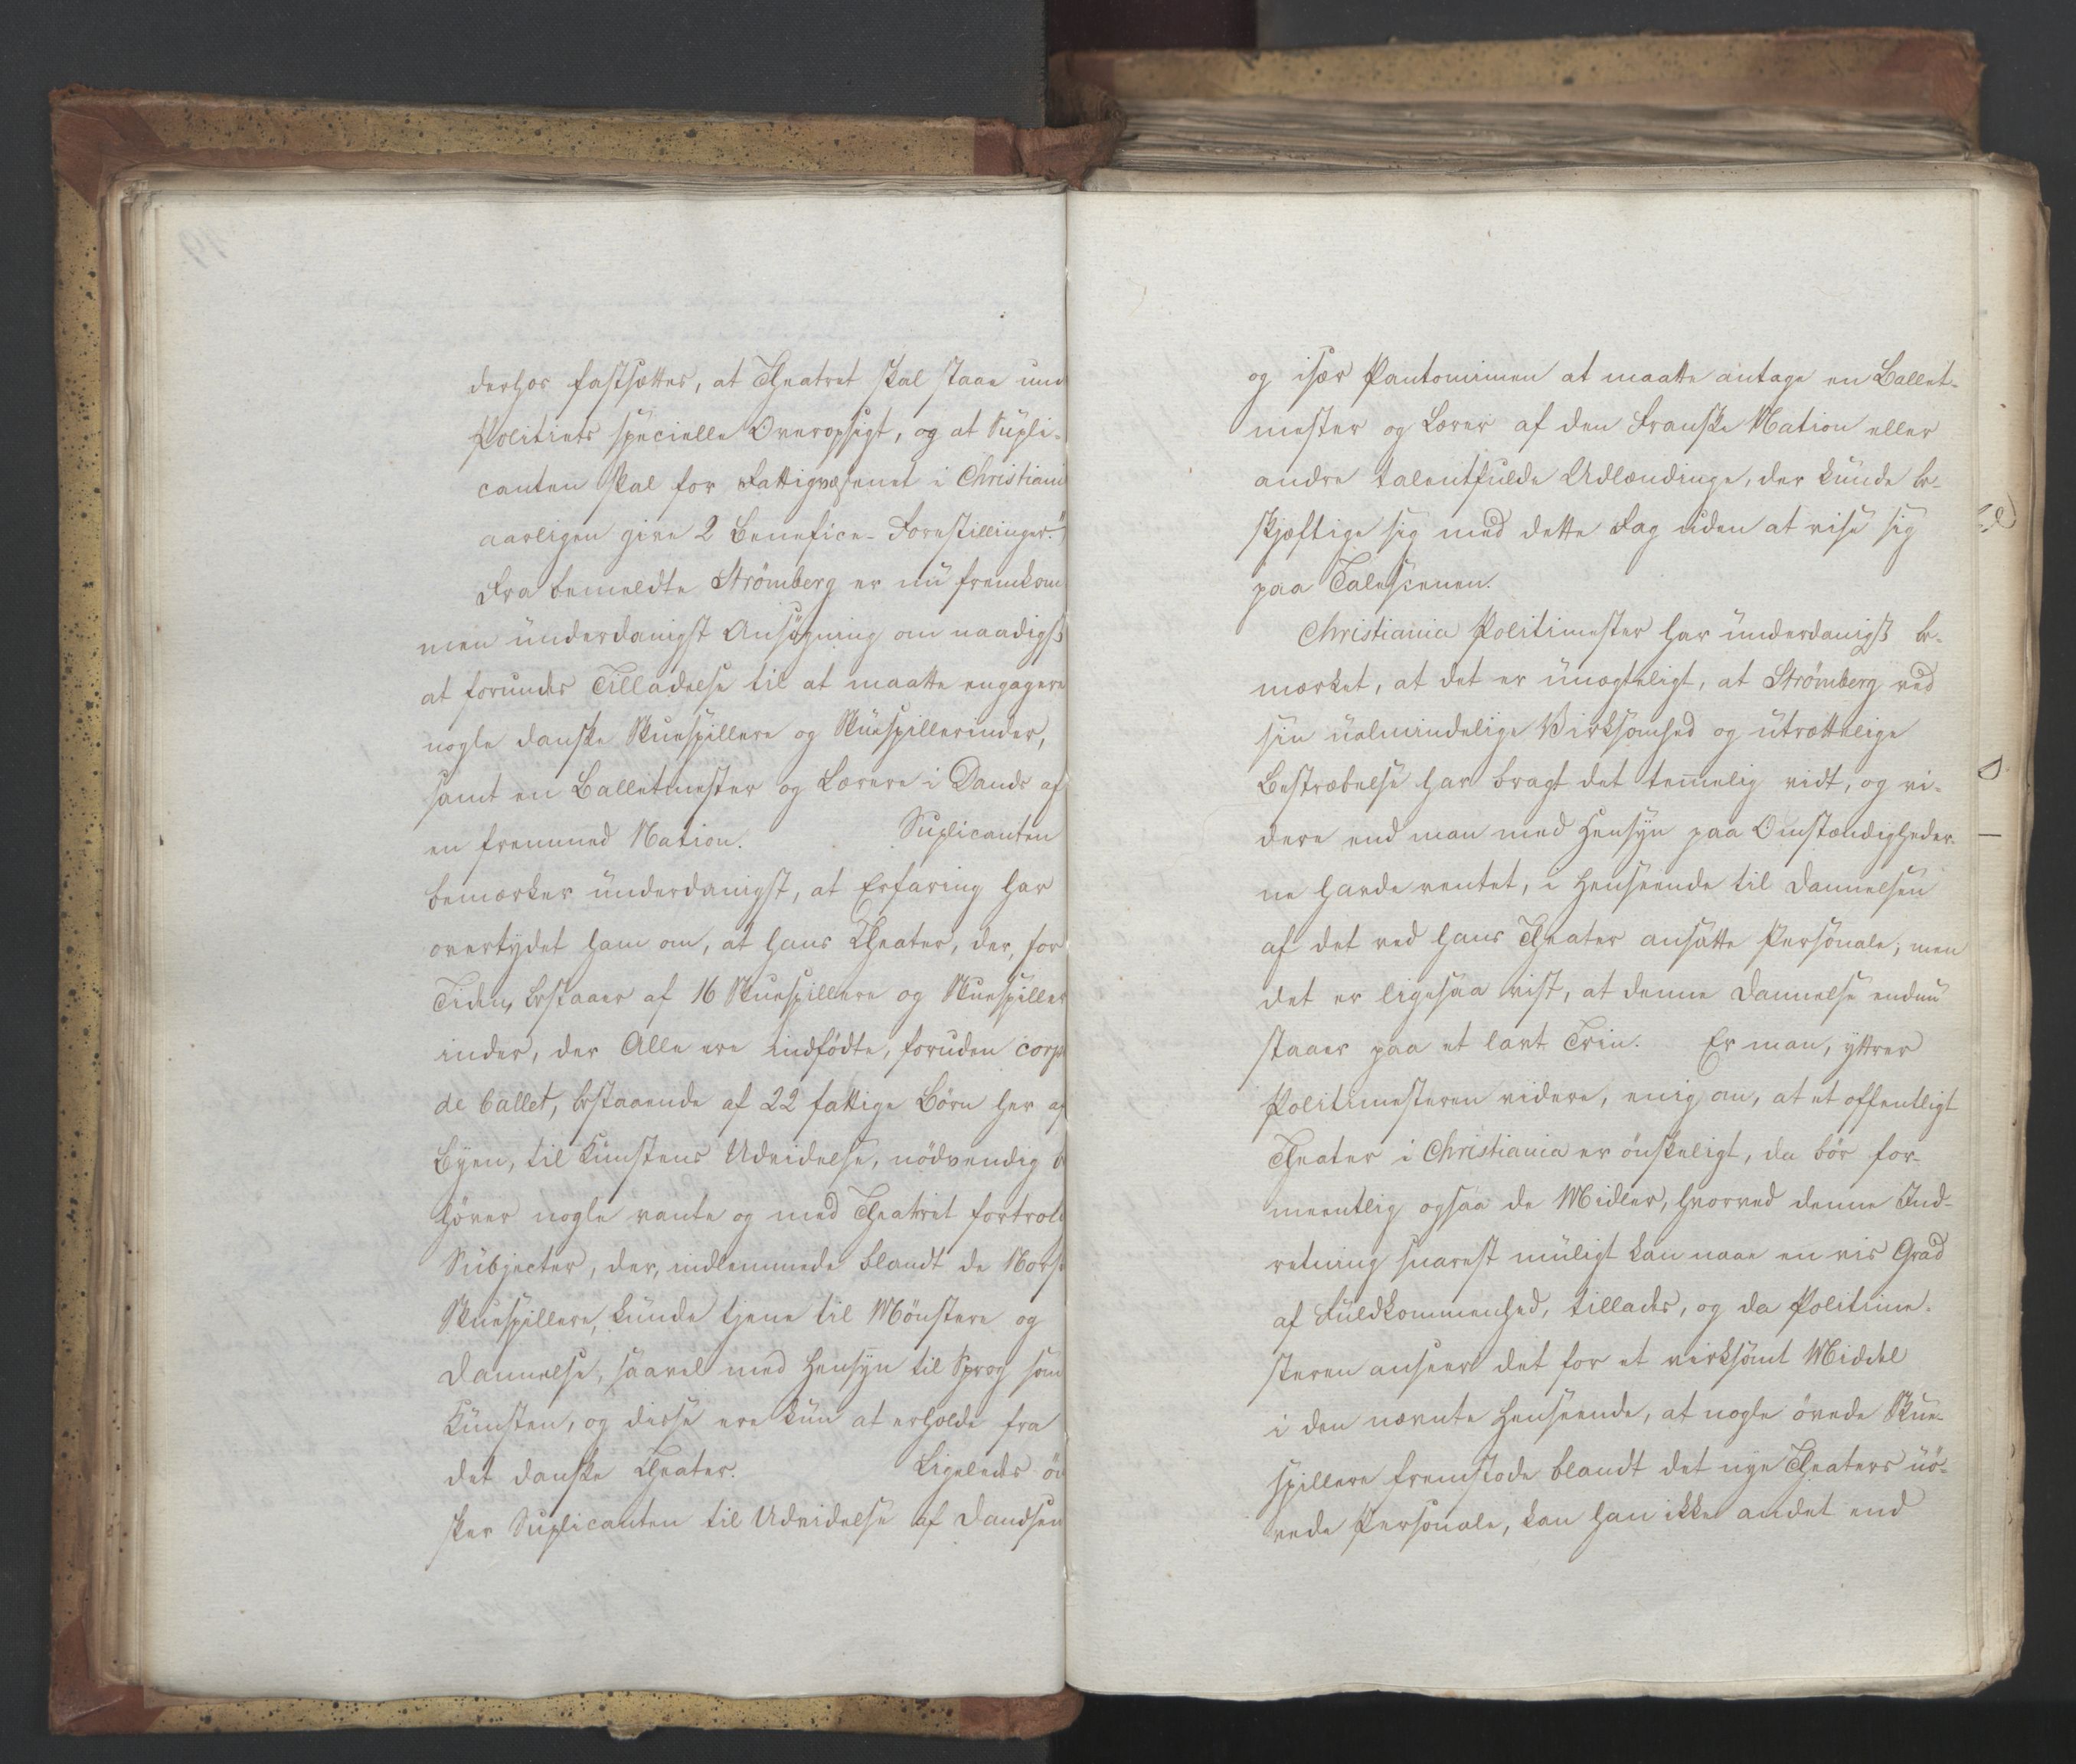 derhos fastsættes, at Theatret skal staae und
Politiets specielle Overopsigt, og at Supli-
canten skal for Fattigvæsenet i Christiani
aarligen give 2 Benefice-Forestillinger."
Fra bemeldte Strømberg er nu fremkom
men underdanigst Ansøgning om naadigst
at forundes Tilladelse til at maatte engagere
nogle danske Skuespillere og Skuespillerinder,
samt en Balletmester og Lærere i Dands af
en fremmed Nation. Suplicanten
bemærker underdanigst, at Erfaring har
overtydet ham om, at hans Theater, der, for
Tiden, bestaaer af 16 Skuespillere og Skuespiller
inder, der Alle ere indfödte, foruden corps
de ballet, bestaaende af 22 fattige Börn her af
Byen, til Kunstens Udvidelse, nödvendig be
höver nogle vante og med Theatret fortrol
Subjecter, der, indlemmede blandt de Norsk
Skuespillere, kunde tjene til Mönstere og
Dannelse, saavel med Hensyn til Sprog som
Kunsten, og disse ere kun at erholde fra
det danske Theater. Ligeledes ön
sker Suplicanten til Udvidelse af Dandsen
og især Pantomimen at maatte antage en Ballet-
mester og Lærer af den Franske Nation eller
andre talentfulde Udlændinge, der kunde be-
skjæftige sig med dette Fag uden at vise sig
paa Talescenen.
Christiania Politimester har underdanigst be-
mærket, at det er unægteligt, at Strømberg ved
sin ualmindelige Virksomhed og utrættelige
Bestræbelse har bragt det temmelig vidt, og vi-
dere end man med Hensyn paa Omstændigheder-
ne havde ventet, i Henseende til Dannelsen
af det ved hans Theater ansatte Personale; men
det er ligesaa vist, at denne Dannelse endnu
staaer paa et lavt Trin. Er man, yttrer
Politimesteren videre, enig om, at et offentligt
Theater i Christiania er önskeligt, da bör for-
meentlig ogsaa de Midler, hvorved denne Ind-
retning snarest muligt kan naae en vis Grad
af Fuldkommenhed, tillades, og da Politime-
steren anseer det for et virksomt Middel
i den nævnte Henseende, at nogle övede Skue-
spillere fremstode blandt det nye Theaters uö-
vede Personale, kan han ikke andet end